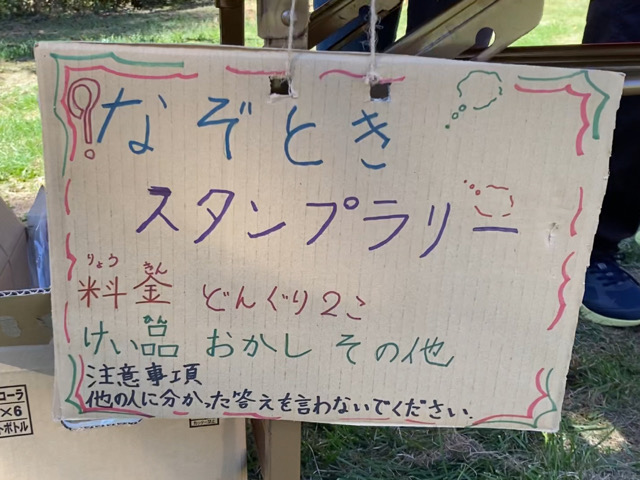 なぞとき
スタンプラリー
りょう きん
料金 どんぐり2こ
けい品 おかし その他
注意事項
他の人に分かった答えを言わないでください.
コーラ
×6
トボトル